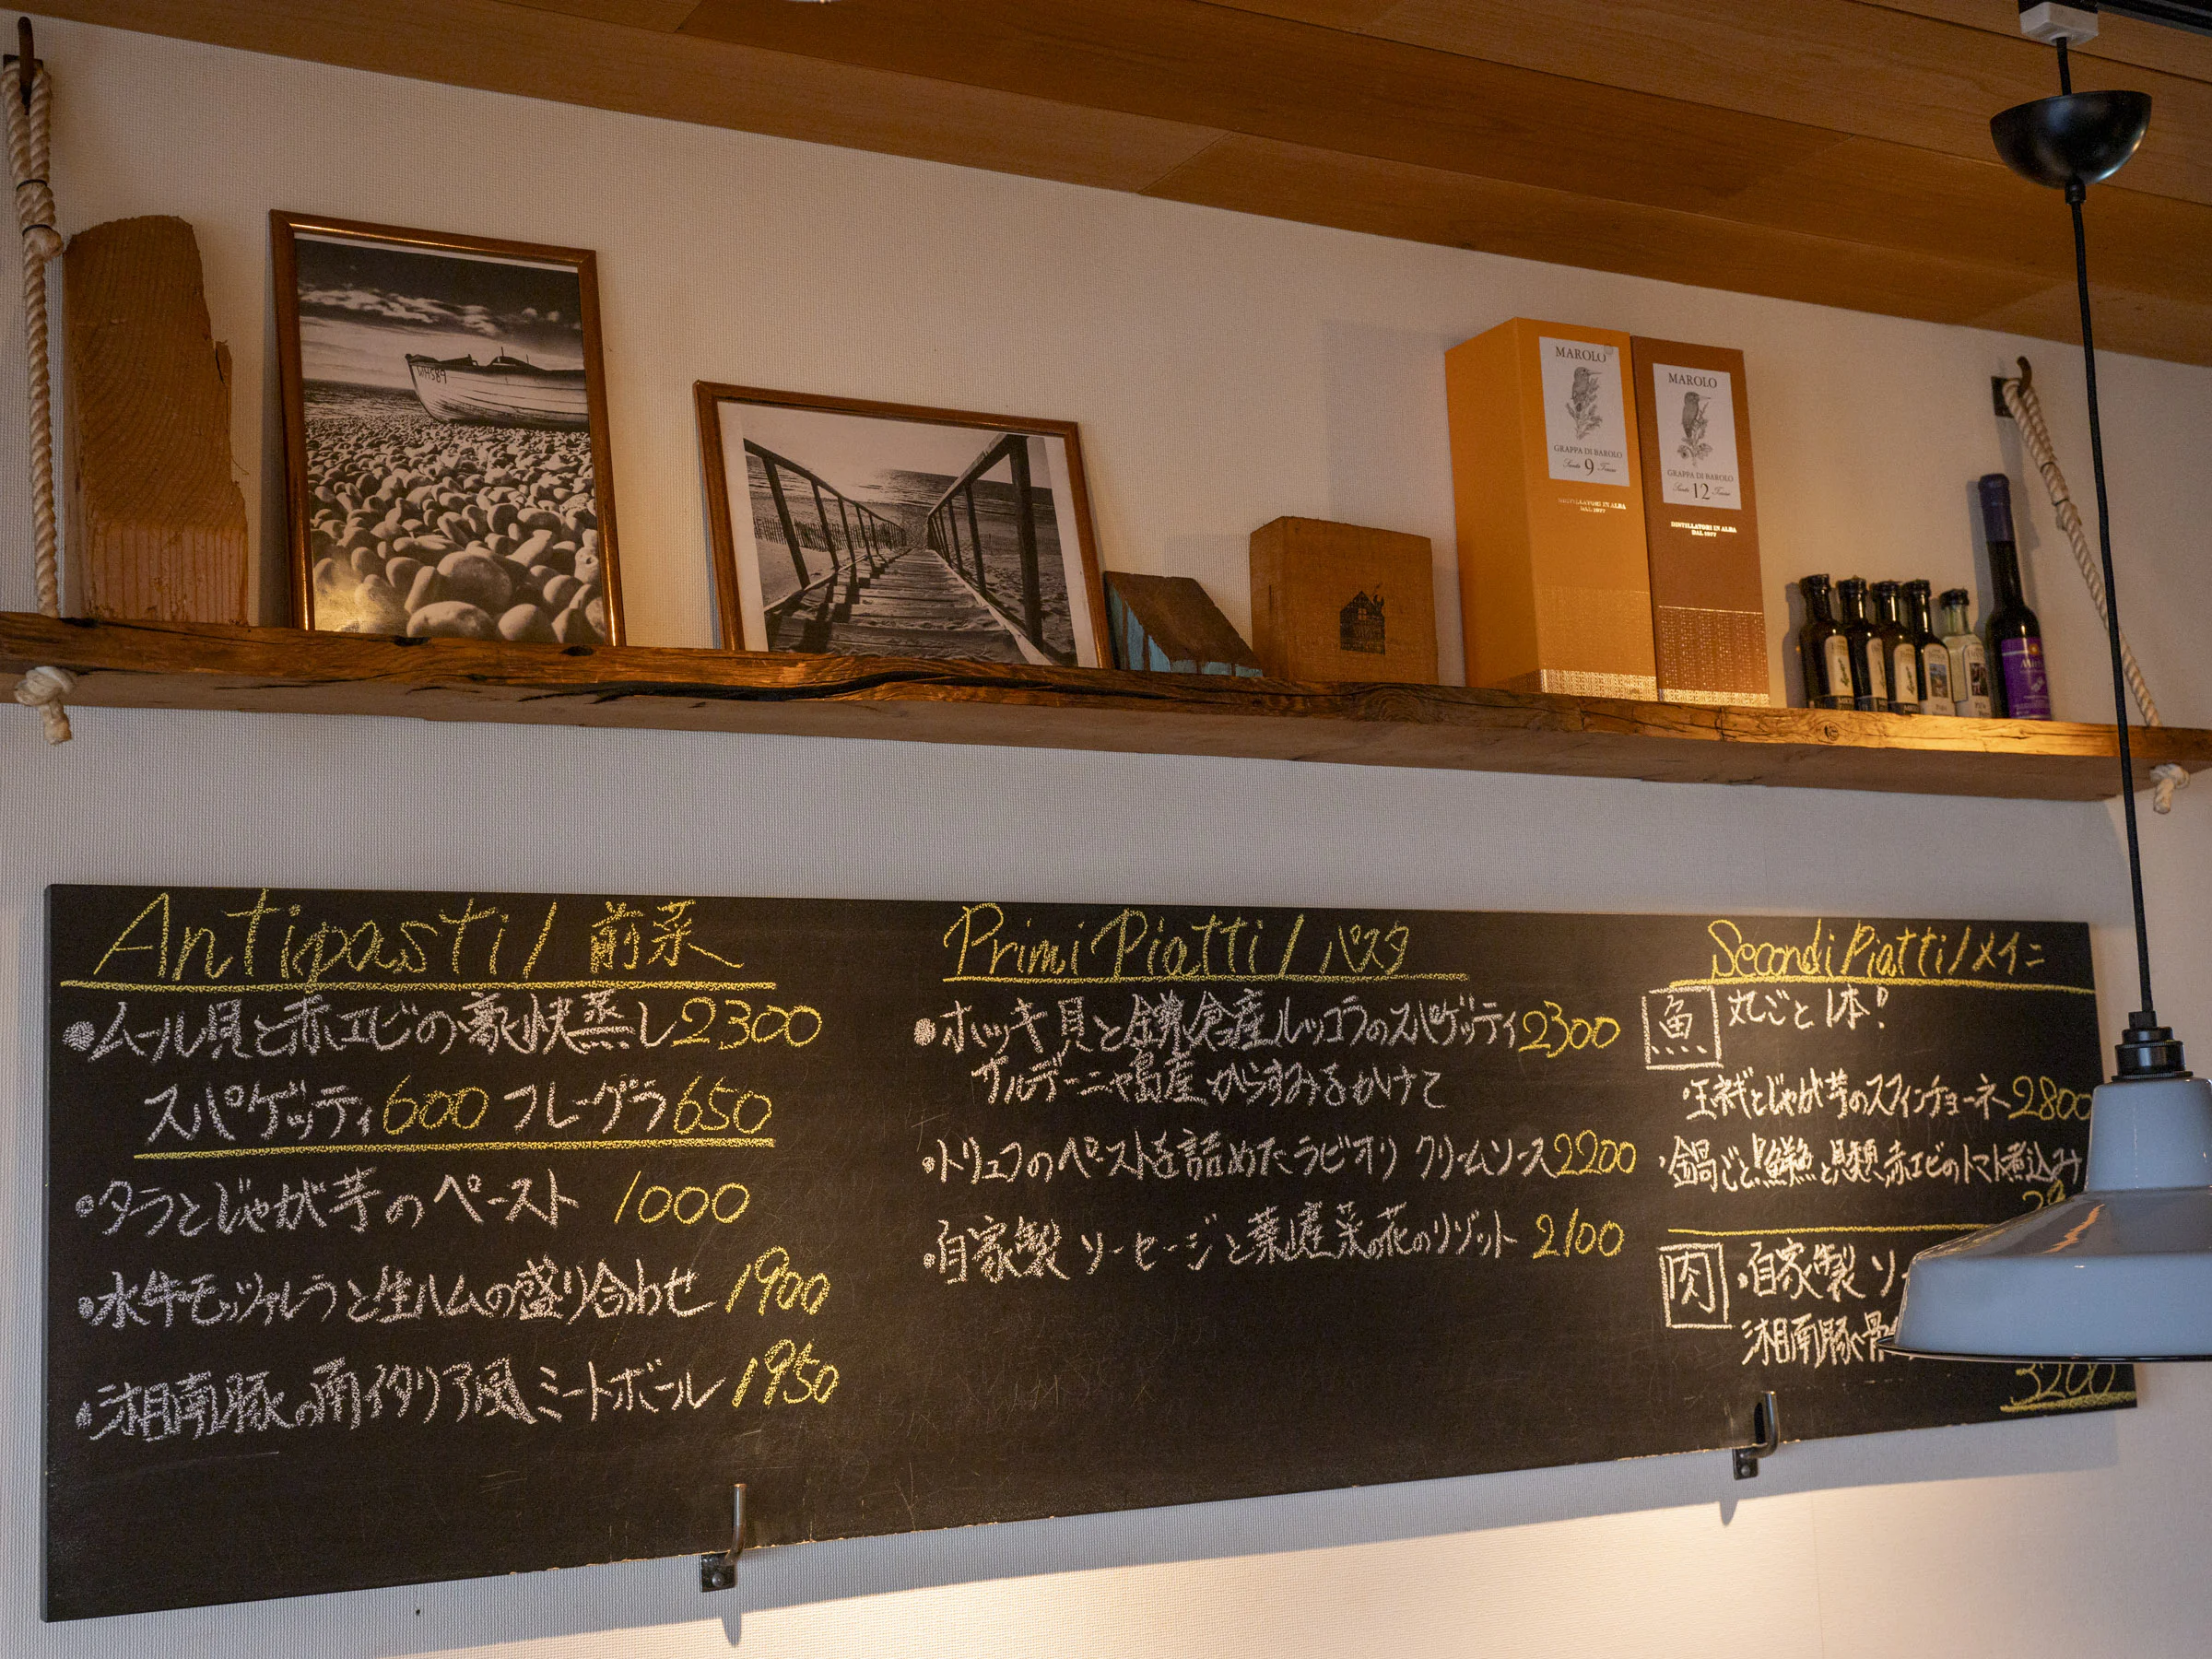 WHS89
MAROLO
GRAPPA DI BAROLO
9
DISTILLATORI IN ALBA
DAL 1977
MAROLO
GRAPPA DI BAROLO
12
DISTILLATORI IN ALBA
DAL 1977
Antipasti / 前菜
●ムール貝と赤エビの豪快蒸し2300
スパゲッティ600 フレーグラ650
●タラとじゃが芋のペースト 1000
●水牛モッツァレラと生ハムの盛り合わせ 1900
●湘南豚の南イタリア風ミートボール 1950
Primi Piatti / パスタ
●ホッキ貝と鎌倉産ルッコラのスパゲッティ2300
サルデーニャ島産からすみをかけて
●トリュフのペーストを詰めたラビオリ クリームソース2200
●自家製ソーセージと葉山産菜の花のリゾット 2100
Secondi Piatti / メイン
魚 丸ごと1本!
・玉ネギとじゃが芋のスフィンチョーネ2800
・鍋ごと!鮮魚と貝類、赤エビのトマト煮込み
肉 ・自家製ソ
湘南豚骨
3200